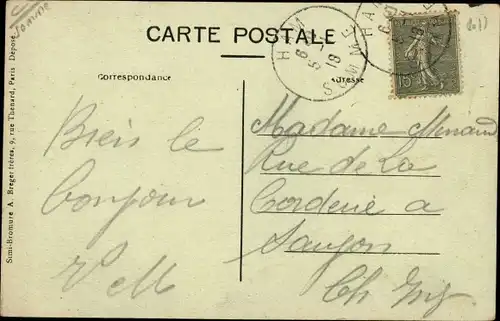 Somme
CARTE POSTALE
HAM SOMME
6 5 18
15
Correspondance
Adresse
Simi-Bromure A. Breger frères, 9, rue Thénard, Paris Déposé
Bien le
bonjour
Madame
Rue de La
Corderie a
Saujon
Ch